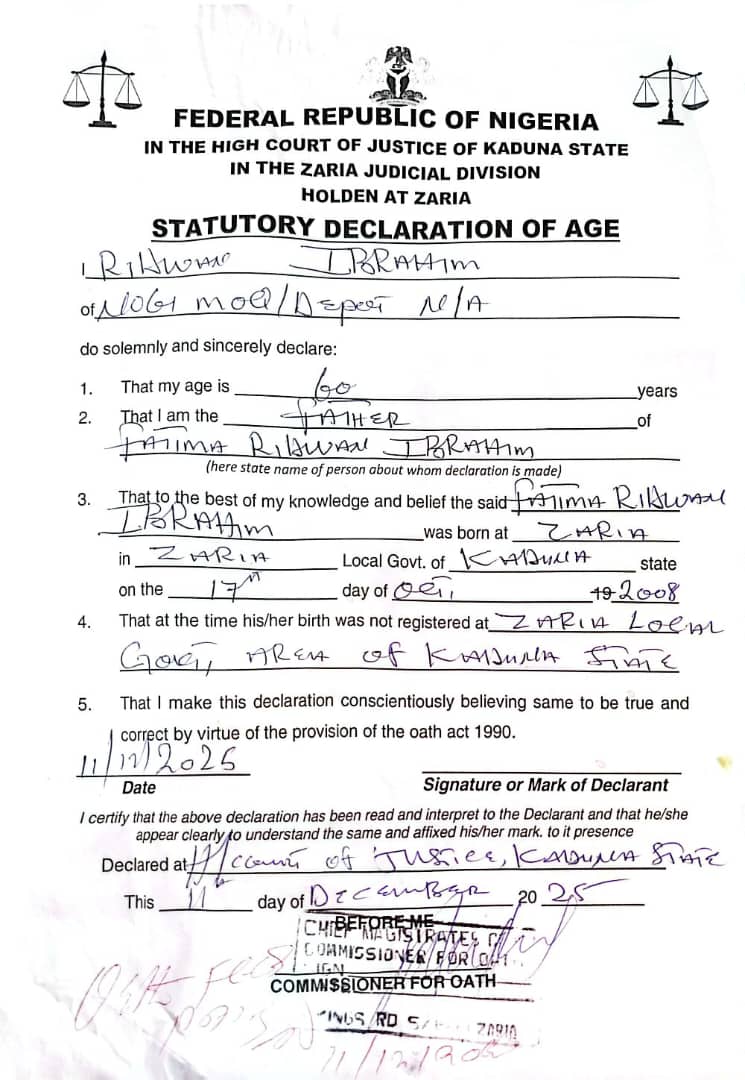 FEDERAL REPUBLIC OF NIGERIA
IN THE HIGH COURT OF JUSTICE OF KADUNA STATE
IN THE ZARIA JUDICIAL DIVISION
HOLDEN AT ZARIA
STATUTORY DECLARATION OF AGE
I RIHWAN IBRAHIM
of N/A
do solemnly and sincerely declare:
1. That my age is 60 years
2. That I am the FATHER of
FATIMA RIHWAN IBRAHIM
(here state name of person about whom declaration is made)
3. That to the best of my knowledge and belief the said FATIMA RIHWAN
IBRAHIM was born at ZARIA
in ZARIA Local Govt. of KADUNA state
on the 17th day of OCT, 19 2008
4. That at the time his/her birth was not registered at ZARIA LOCAL
GOVT, AREA OF KADUNA STATE
5. That I make this declaration conscientiously believing same to be true and
correct by virtue of the provision of the oath act 1990.
11/12/2025
Date Signature or Mark of Declarant
I certify that the above declaration has been read and interpret to the Declarant and that he/she
appear clearly to understand the same and affixed his/her mark. to it presence
Declared at H/COURT OF JUSTICE, KADUNA STATE
This 11th day of DECEMBER 20 25
BEFORE ME
CHIEF MAGISTRATES
COMMISSIONER FOR
COMMISSIONER FOR OATH
RD ZARIA
Oath Fees
11/12/